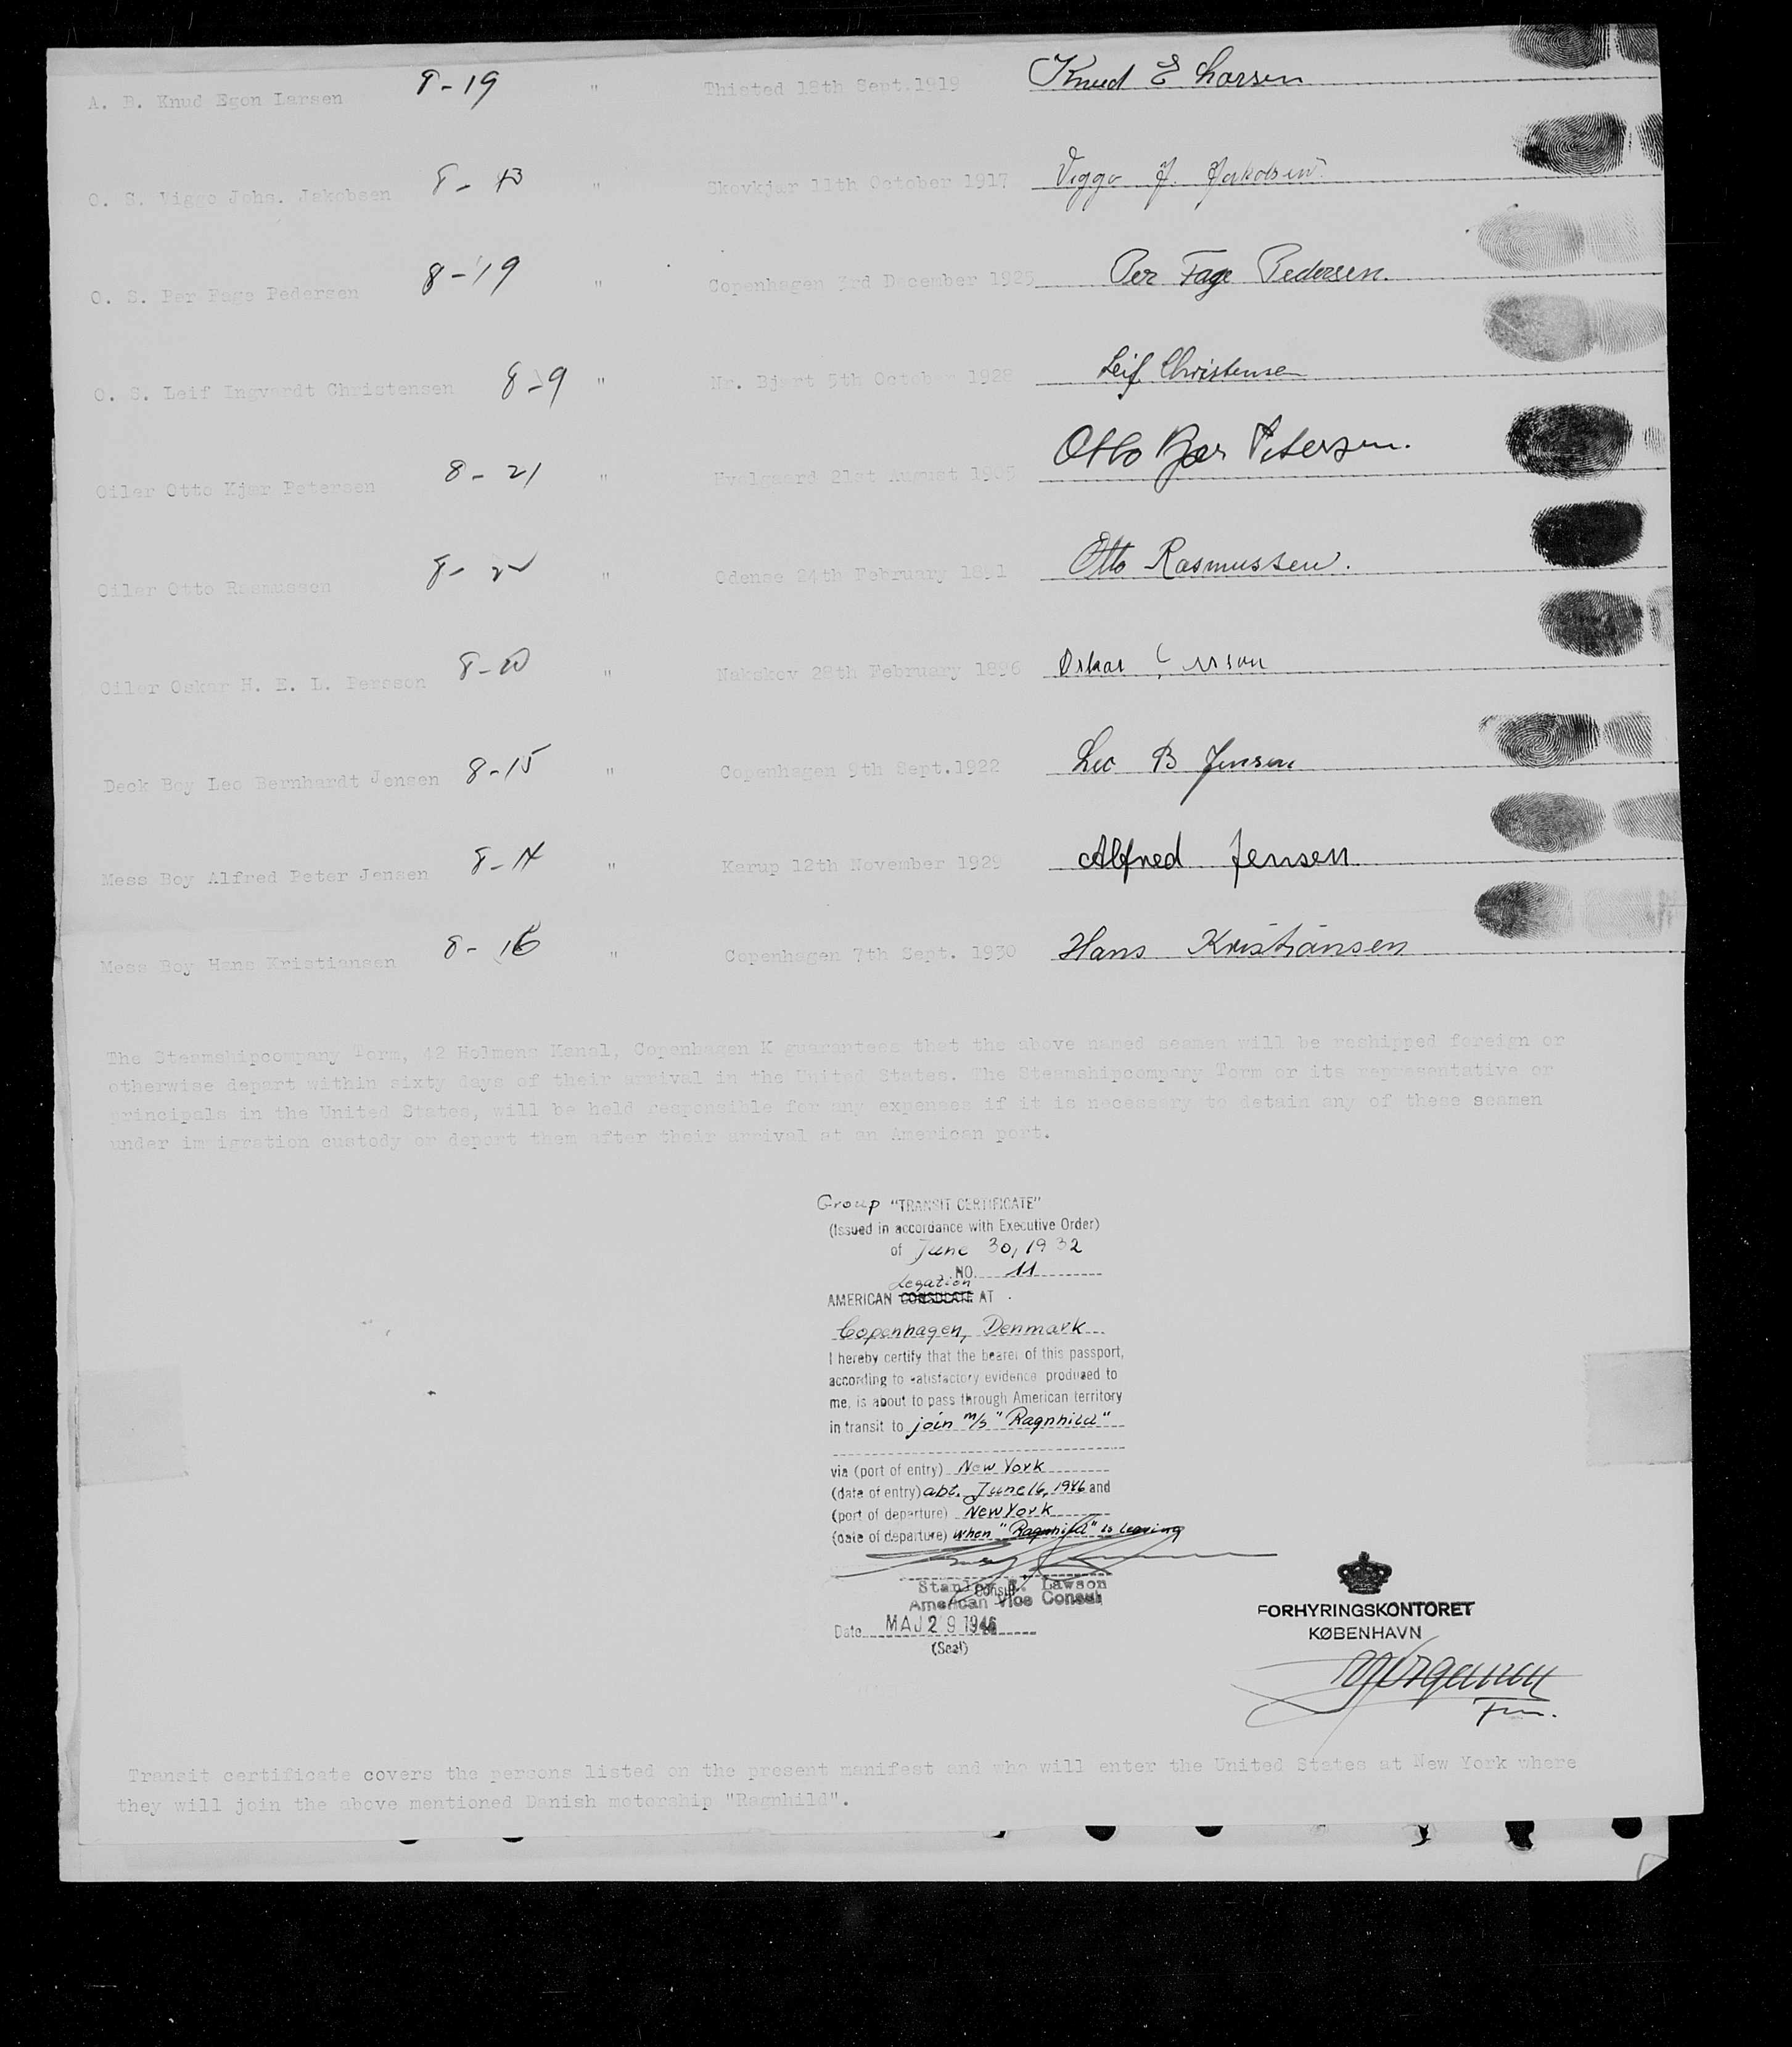 A. B. Knud Egon Larsen 8-19 " Thisted 18th Sept.1919 Knud E Larsen
O. S. Viggo Johs. Jakobsen 8- " Skovkjær 11th October 1917 Viggo J. Jakobsen
O. S. Per Fage Pedersen 8-19 " Copenhagen 3rd December 1925 Per Fage Pedersen.
O. S. Leif Ingvardt Christensen 8-9 " Nr. Bjert 5th October 1928 Leif Christensen
Oiler Otto Kjær Petersen 8-21 " 21st August Otto Kjær Petersen.
Oiler Otto Rasmussen 8- " Odense 24th February 1891 Otto Rasmussen.
Oiler Oskar H. E. L. Persson 8-20 " Nakskov 28th February 1896 Oskar Persson
Deck Boy Leo Bernhardt Jensen 8-15 " Copenhagen 9th Sept.1922 Leo B Jensen
Mess Boy Alfred Peter Jensen 8-14 " Karup 12th November 1929 Alfred Jensen
Mess Boy Hans Kristiansen 8-16 " Copenhagen 7th Sept. 1930 Hans Kristiansen
The Steamshipcompany Torm, 42 Holmens Kanal, Copenhagen K guarantees that the above named seamen will be reshipped foreign or
otherwise depart within sixty days of their arrival in the United States. The Steamshipcompany Torm or its representative or
principals in the United States, will be held responsible for any expenses if it is necessary to detain any of these seamen
under immigration custody or deport them after their arrival at an American port.
Group "TRANSIT CERTIFICATE"
(Issued in accordance with Executive Order)
of June 30, 1932
NO. 11
Legation
AMERICAN CONSULATE AT
Copenhagen, Denmark
I hereby certify that the bearer of this passport,
according to satisfactory evidence produced to
me, is about to pass through American territory
in transit to join m/s "Ragnhild"
via (port of entry) New York
(date of entry) abt. June 16, 1946 and
(port of departure) New York
(date of departure) when "Ragnhild" is leaving
Consul
Stanley Lawson
American Vice Consul
Date MAJ 29 1946
(Seal)
FORHYRINGSKONTORET
KØBENHAVN
Fm.
Transit certificate covers the persons listed on the present manifest and who will enter the United States at New York where
they will join the above mentioned Danish motorship "Ragnhild".